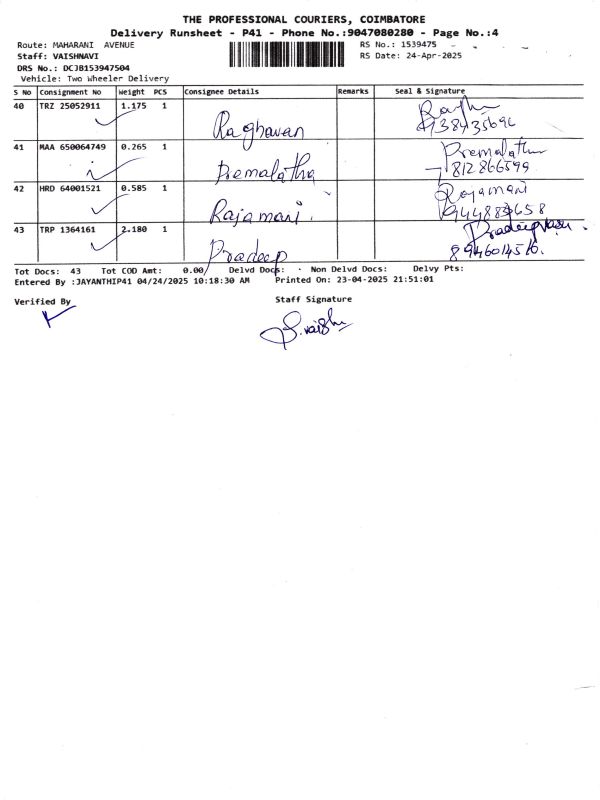 THE PROFESSIONAL COURIERS, COIMBATORE
Delivery Runsheet - P41 - Phone No.:9047080280 - Page No.:4
Route: MAHARANI AVENUE
RS No.: 1539475
Staff: VAISHNAVI
RS Date: 24-Apr-2025
DRS No.: DCJB153947504
Vehicle: Two Wheeler Delivery
S No Consignment No Weight PCS Consignee Details Remarks Seal & Signature
40 TRZ 25052911 1.175 1 Raghavan
41 MAA 650064749 0.265 1 Premalatha Premalatha
7812866599
42 HRD 64001521 0.585 1 Rajamani. Rajamani
43 TRP 1364161 2.180 1 Pradeep
8946014516.
Tot Docs: 43 Tot COD Amt: 0.00/ Delvd Docs: Non Delvd Docs: Delvy Pts:
Entered By :JAYANTHIP41 04/24/2025 10:18:30 AM Printed On: 23-04-2025 21:51:01
Verified By
Staff Signature